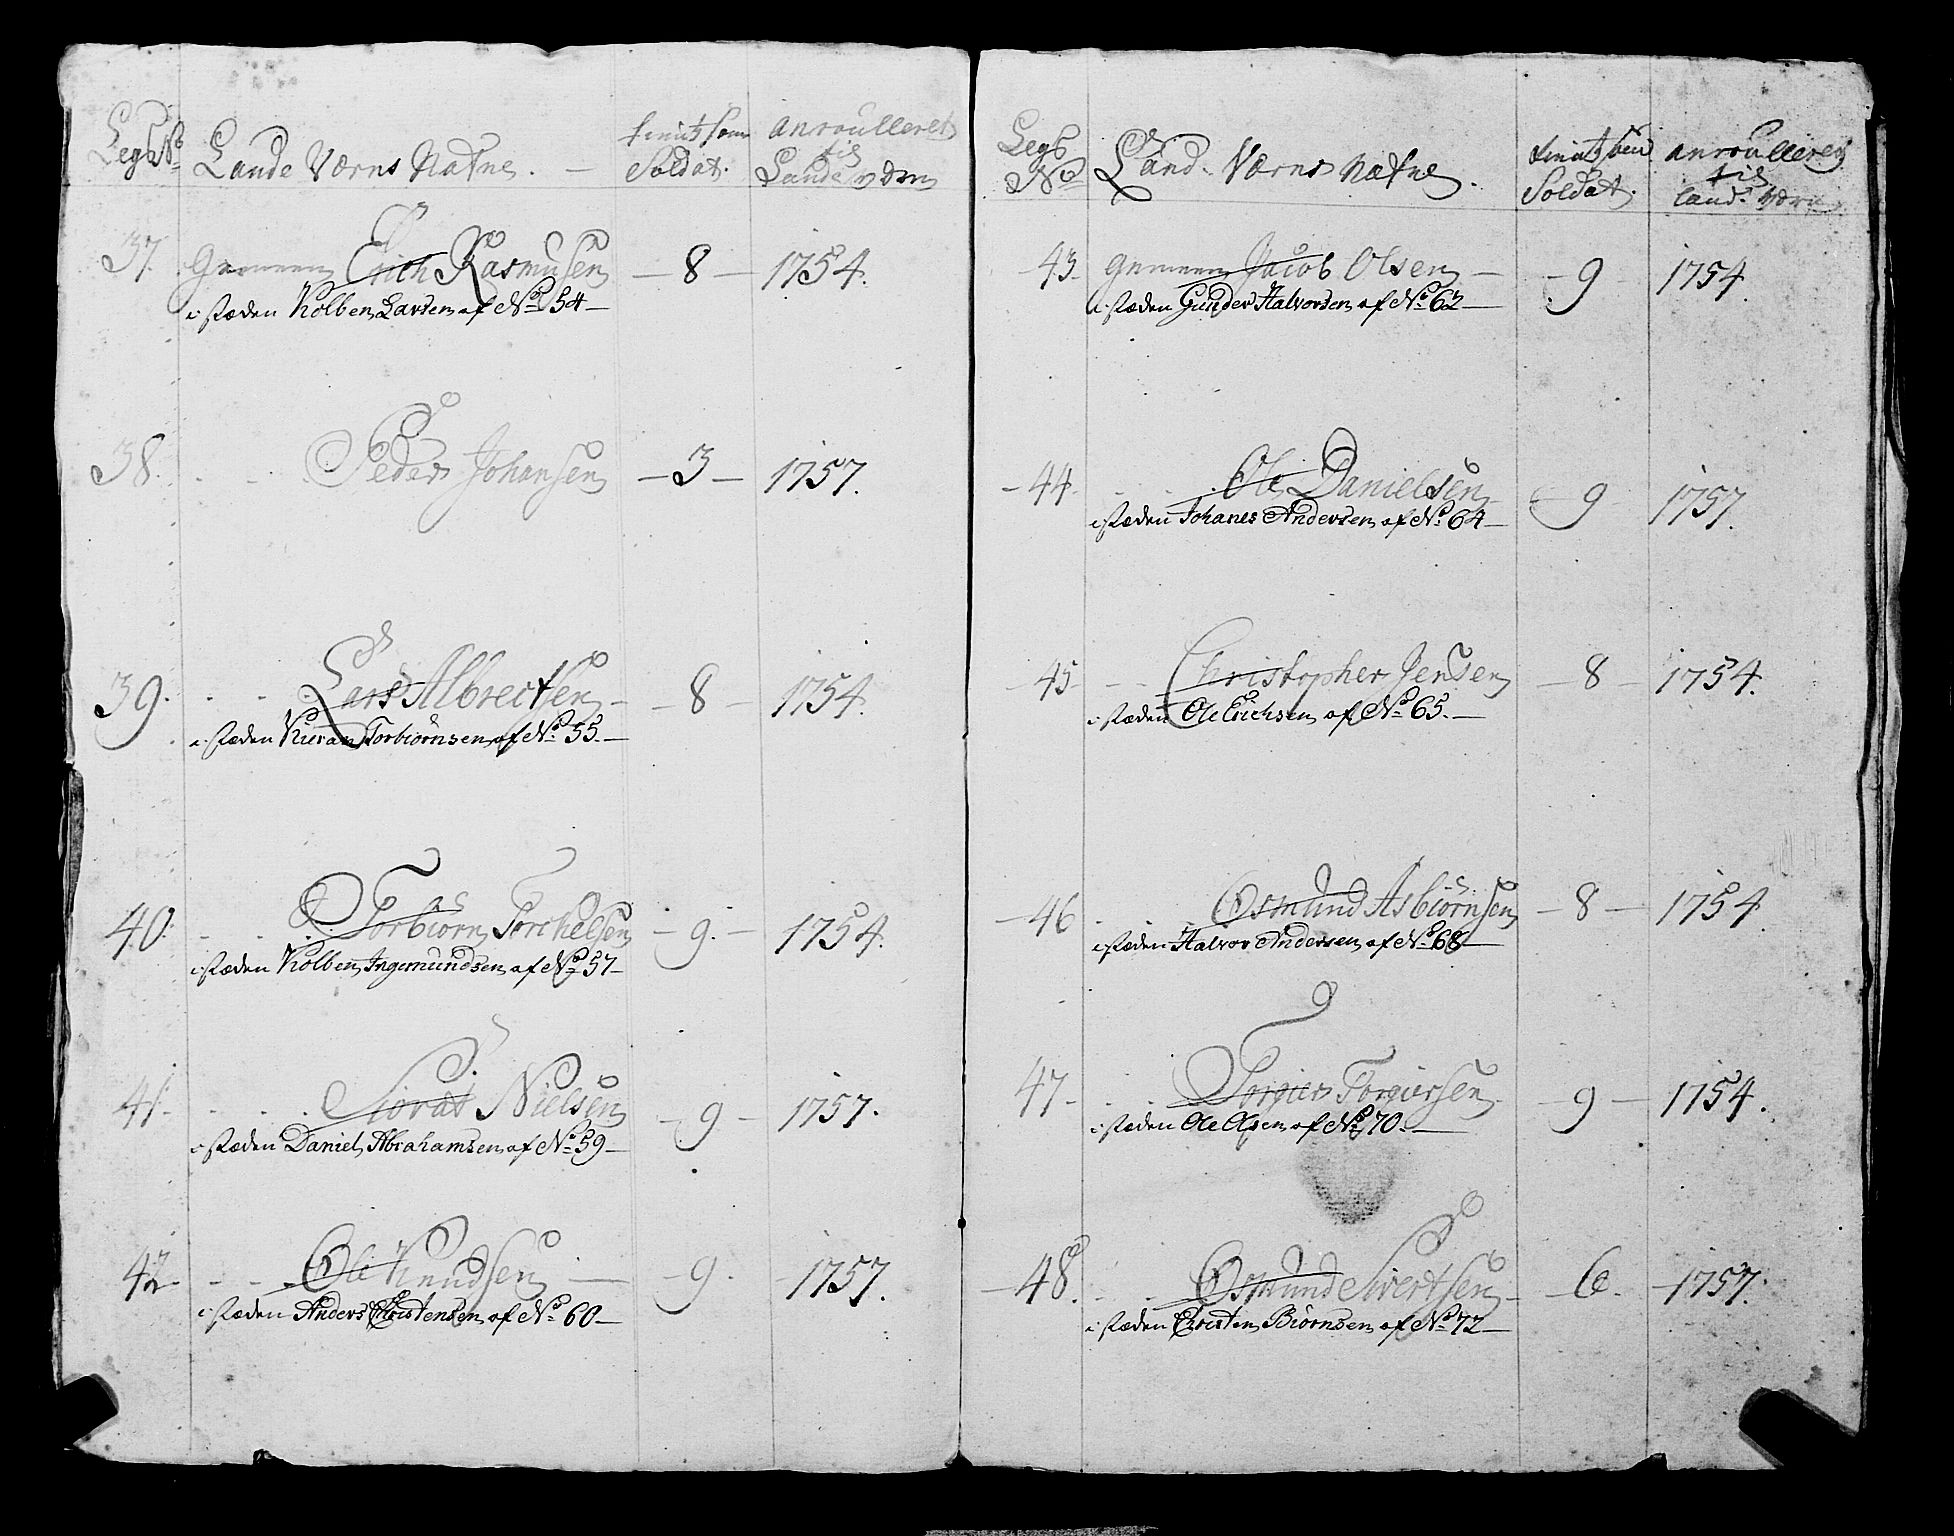 Legs No
Lande Værns Nafne.
tient som
Soldat.
anroulleret
til
Lande værn
37. Gemeen Erich Rasmusen — 8 — 1754.
i stæden Kolben Larsen af No 54 —
38. - - Peder Johansen — 3 — 1757.
39. - - Lars Albrectsen — 8 — 1754.
i stæden Torbiörnsen af No 55. —
40. - - Torbiörn Torchelsen — 9. — 1754.
i stæden Kolben Ingemundsen af No 57 —
41. - - Siovat Nielsen — 9 — 1757.
i stæden Daniel Abrahamsen af No 59 —
42 - - Ole Knudsen — 9. — 1757.
i stæden Anders Christensen af No 60 —
Legs
No
Land. Værns Nafne.
tient som
Soldat.
anroulleret
til
land. værn
43. Gemeen Jacob Olsen — 9 1754.
i stæden Gunder Halvorsen af No 62 —
— 44. - - Ole Danielsen — 9 1757.
i stæden Johanes Andersen af No 64 —
— 45 - - Christopher Jensen — 8 — 1754.
i stæden Ole Erichsen af No 65. —
— 46 - - Osmund Asbiörnsen — 8 — 1754
i stæden Halvor Andersen af No 68 —
47 - - - Torgiers Torgiersen — 9 — 1754.
i stæden Ole Olsen af No 70. —
— 48. - - Osmund Sivertsen — 6. — 1757.
i stæden Christen Biörnsen af No 72 —